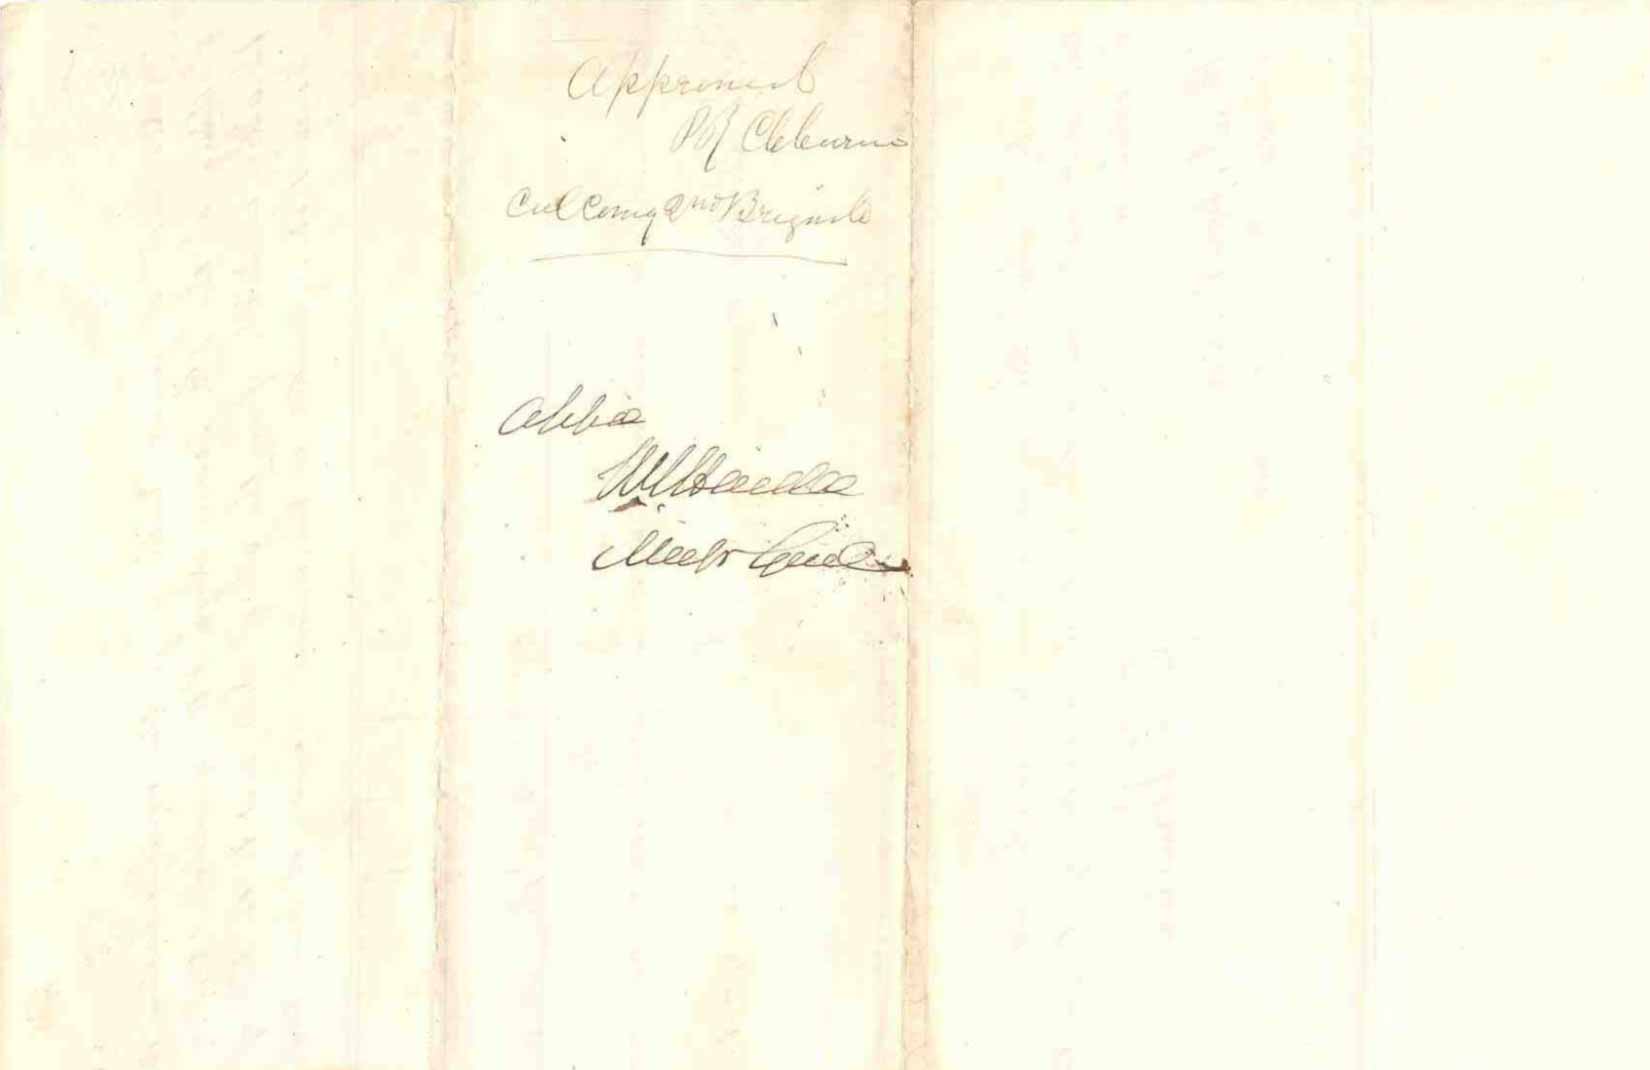 Approved
P R Cleburne
Col Comg 2nd Brigade
W J Hardee
Maj Genl